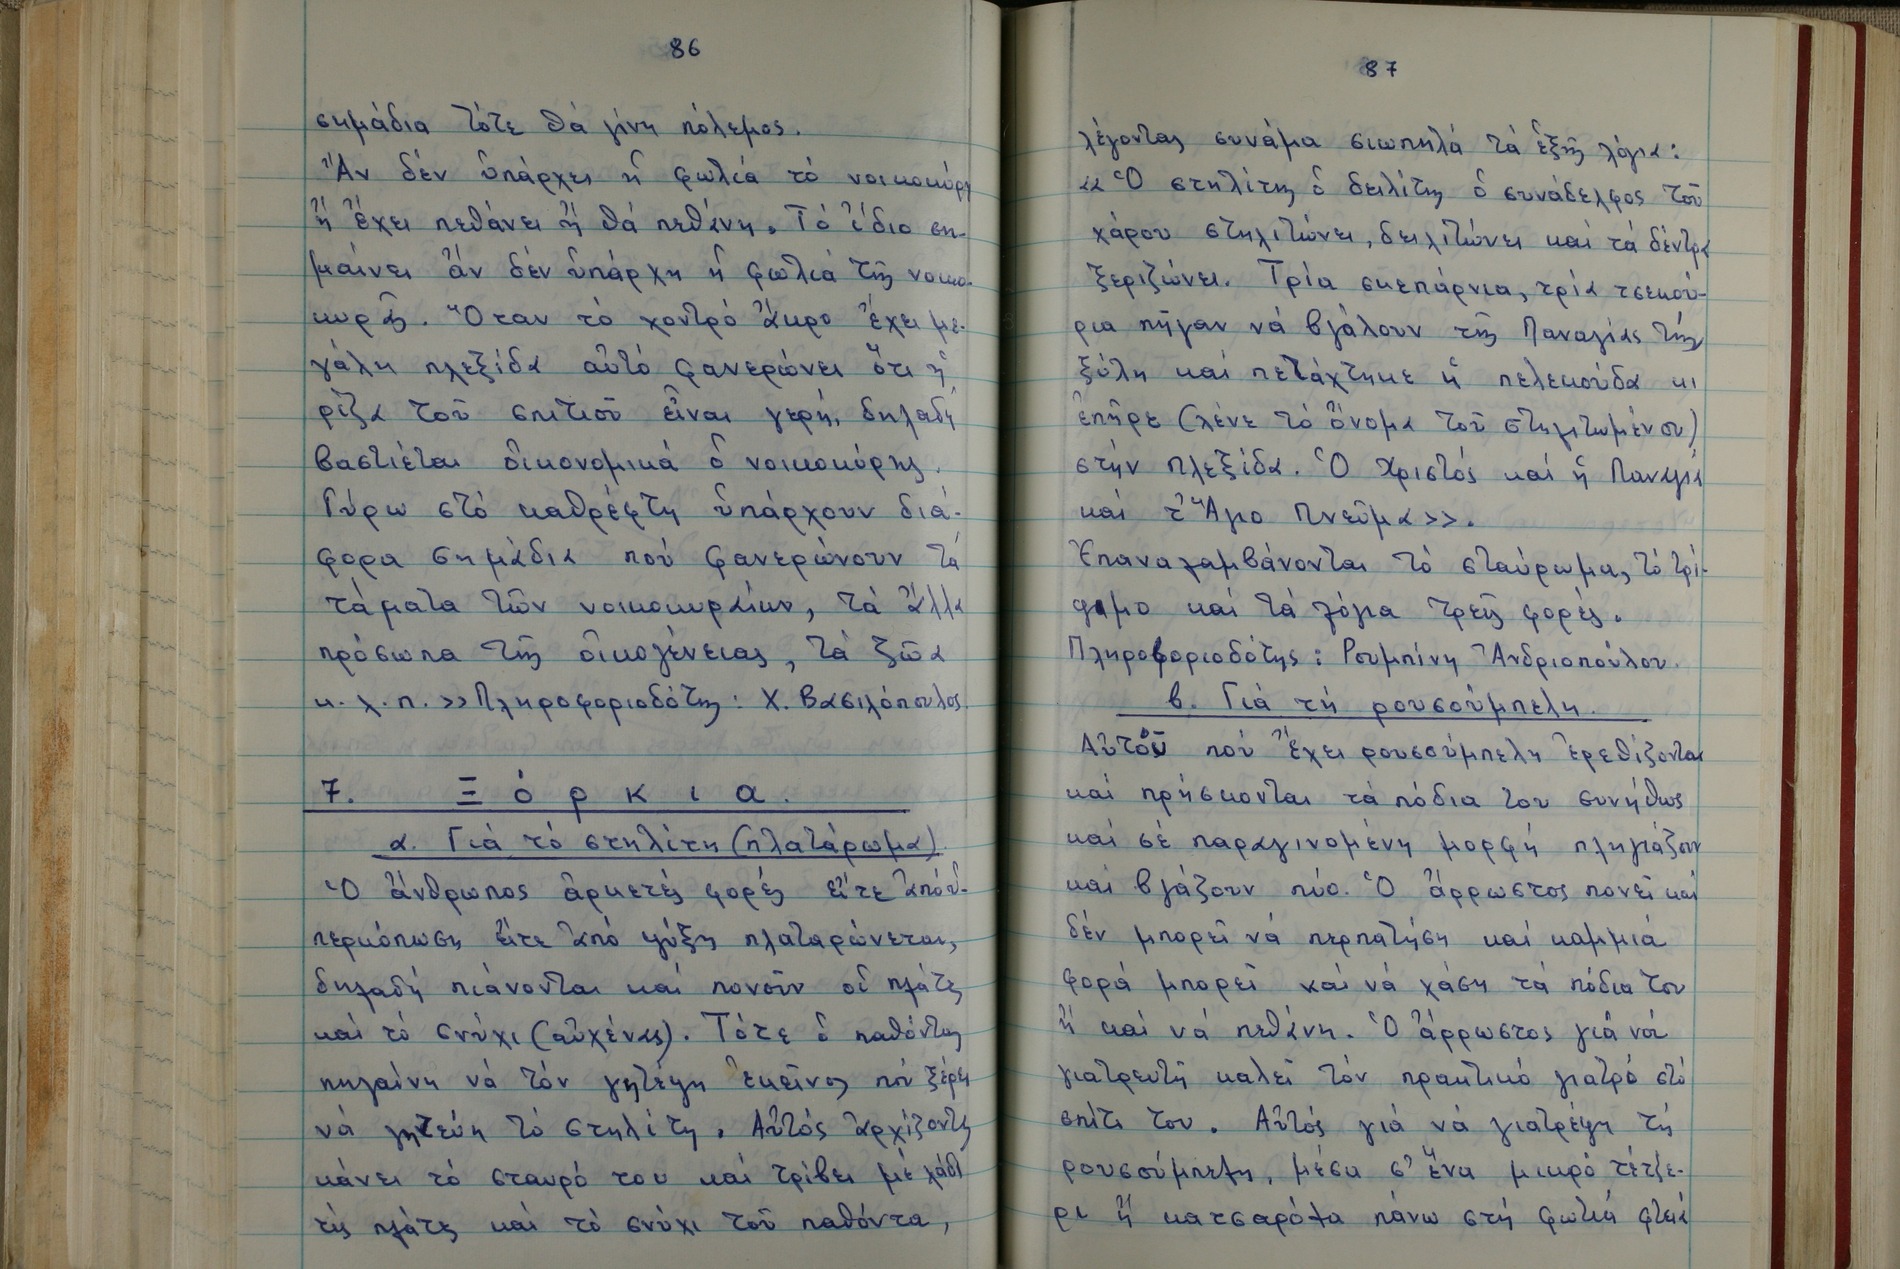 86
σημάδια τότε θά γίνη πόλεμος.
Ἄν δέν ὑπάρχει ἡ φωλιά τό νοικοκύρη
ἤ ἔχει πεθάνει ἤ θά πεθάνη. Τό ἴδιο ση-
μαίνει ἄν δέν ὑπάρχη ἡ φωλιά τῆς νοικο-
κυρᾶς. Ὅταν τό χοντρό ἄκρο ἔχει με-
γάλη πλεξίδα αὐτό φανερώνει ὅτι ἡ
ρίζα τοῦ σπιτιοῦ εἶναι γερή, δηλαδή
βαστιέται οἰκονομικά ὁ νοικοκύρης.
Γύρω στό καθρέφτη ὑπάρχουν διά-
φορα σημάδια πού φανερώνουν τά
τάματα τῶν νοικοκυραίων, τά ἄλλα
πρόσωπα τῆς οἰκογένειας, τά ζῶα
κ.λ.π.» Πληροφοριοδότης: Χ. Βασιλόπουλος.
7. Ξόρκια.
α. Γιά τό στηλίτη (πλατάρωμα)
Ὁ ἄνθρωπος ἀρκετές φορές εἴτε ἀπό ὑ-
περκόπωση εἴτε ἀπό ψύξη πλαταρώνεται,
δηλαδή πιάνονται καί πονοῦν οἱ πλάτες
καί τό σνύχι (αὐχένας). Τότε ὁ παθόντας
πηγαίνη νά τόν γητέψη ἐκεῖνος πού ξέρει
νά γητεύη τό στηλίτη. Αὐτός ἀρχίζοντας
κάνει τό σταυρό του καί τρίβει μέ λάδι
τίς πλάτες καί τό σνύχι τοῦ παθόντα,
87
λέγοντας συνάμα σιωπηλά τά ἑξῆς λόγια:
«Ὁ στηλίτης ὁ δειλίτης ὁ συνάδελφος τοῦ
χάρου στηλιτώνει, δειλιτώνει καί τά δέντρα
ξεριζώνει. Τρία σκεπάρνια, τρία τσεκού-
ρια πῆγαν νά βγάλουν τῆς Παναγίας τήν
ξύλη καί πετάχτηκε ἡ πελεκούδα κι
ἐπῆρε (λένε τό ὄνομα τοῦ στηλιτωμένου)
στήν πλεξίδα. Ὁ Χριστός καί ἡ Παναγιά
καί τ' Ἅγιο Πνεῦμα».
Ἐπαναλαμβάνονται τό σταύρωμα, τό τρί-
ψιμο καί τά λόγια τρεῖς φορές.
Πληροφοριοδότης: Ρουμπίνη Ἀνδριοπούλου.
β. Γιά τή ρουσούμπελη.
Αὐτοῦ πού ἔχει ρουσούμπελη ἐρεθίζονται
καί πρήσκονται τά πόδια του συνήθως
καί σέ παραγινομένη μορφή πληγιάζουν
καί βγάζουν πύο. Ὁ ἄρρωστος πονεῖ καί
δέν μπορεῖ νά περπατήση καί καμμιά
φορά μπορεῖ καί νά χάση τά πόδια του
ἤ καί νά πεθάνη. Ὁ ἄρρωστος γιά νά
γιατρευτῆ καλεῖ τόν πρακτικό γιατρό στό
σπίτι του. Αὐτός γιά νά γιατρέψη τή
ρουσούμπελη, μέσα σ' ἕνα μικρό τέτζε-
ρι ἤ κατσαρόλα πάνω στή φωτιά φτειά